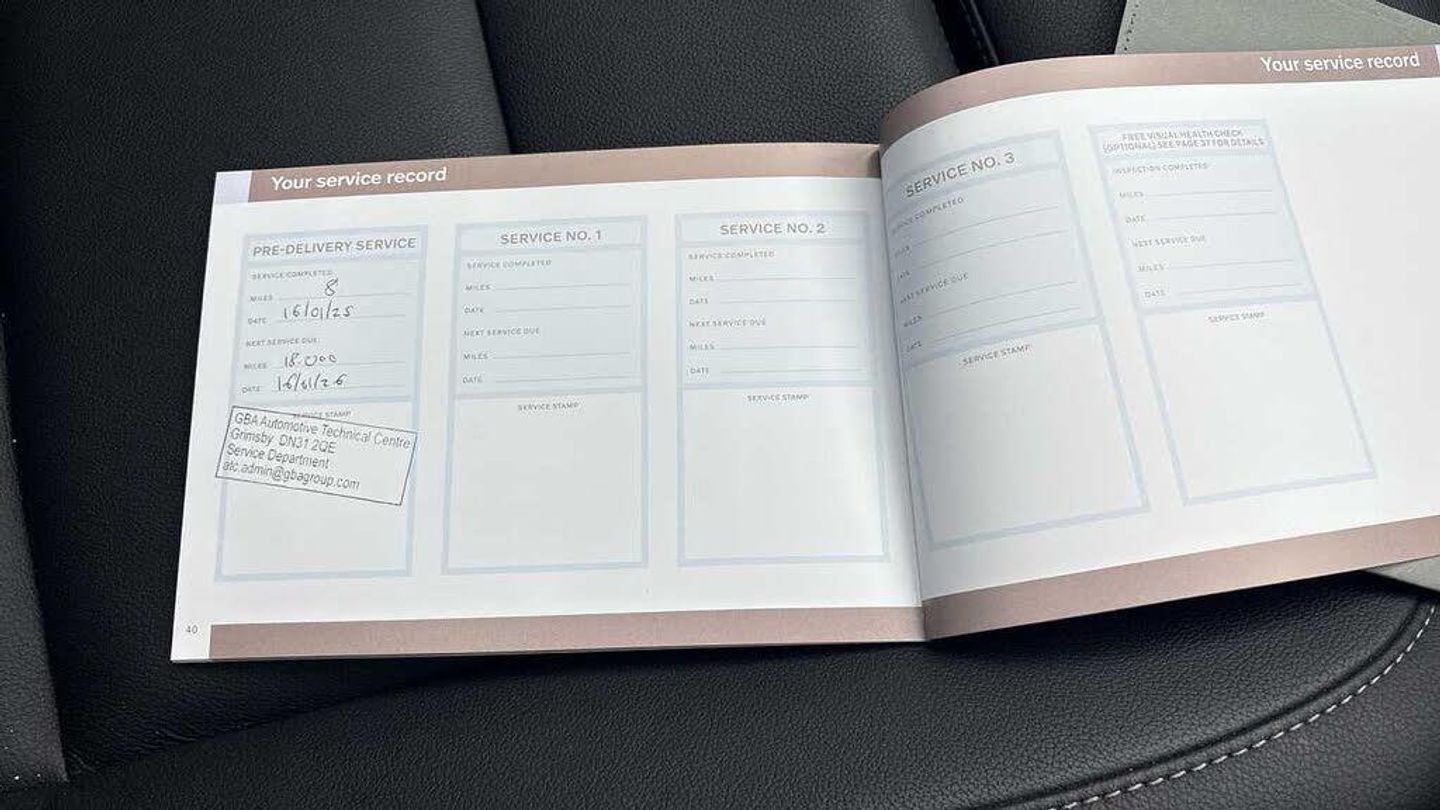 Your service record
PRE-DELIVERY SERVICE
SERVICE COMPLETED
MILES 8
DATE 16/01/25
NEXT SERVICE DUE
MILES 18.000
DATE 16/01/26
SERVICE STAMP
GBA Automotive Technical Centre
Grimsby DN31 2QE
Service Department
atc.admin@gbagroup.com
SERVICE NO. 1
SERVICE COMPLETED
MILES
DATE
NEXT SERVICE DUE
MILES
DATE
SERVICE STAMP
SERVICE NO. 2
SERVICE COMPLETED
MILES
DATE
NEXT SERVICE DUE
MILES
DATE
SERVICE STAMP
40
Your service record
SERVICE NO. 3
SERVICE COMPLETED
MILES
DATE
NEXT SERVICE DUE
MILES
DATE
SERVICE STAMP
FREE VISUAL HEALTH CHECK
(OPTIONAL) SEE PAGE 37 FOR DETAILS
INSPECTION COMPLETED
MILES
DATE
NEXT SERVICE DUE
MILES
DATE
SERVICE STAMP